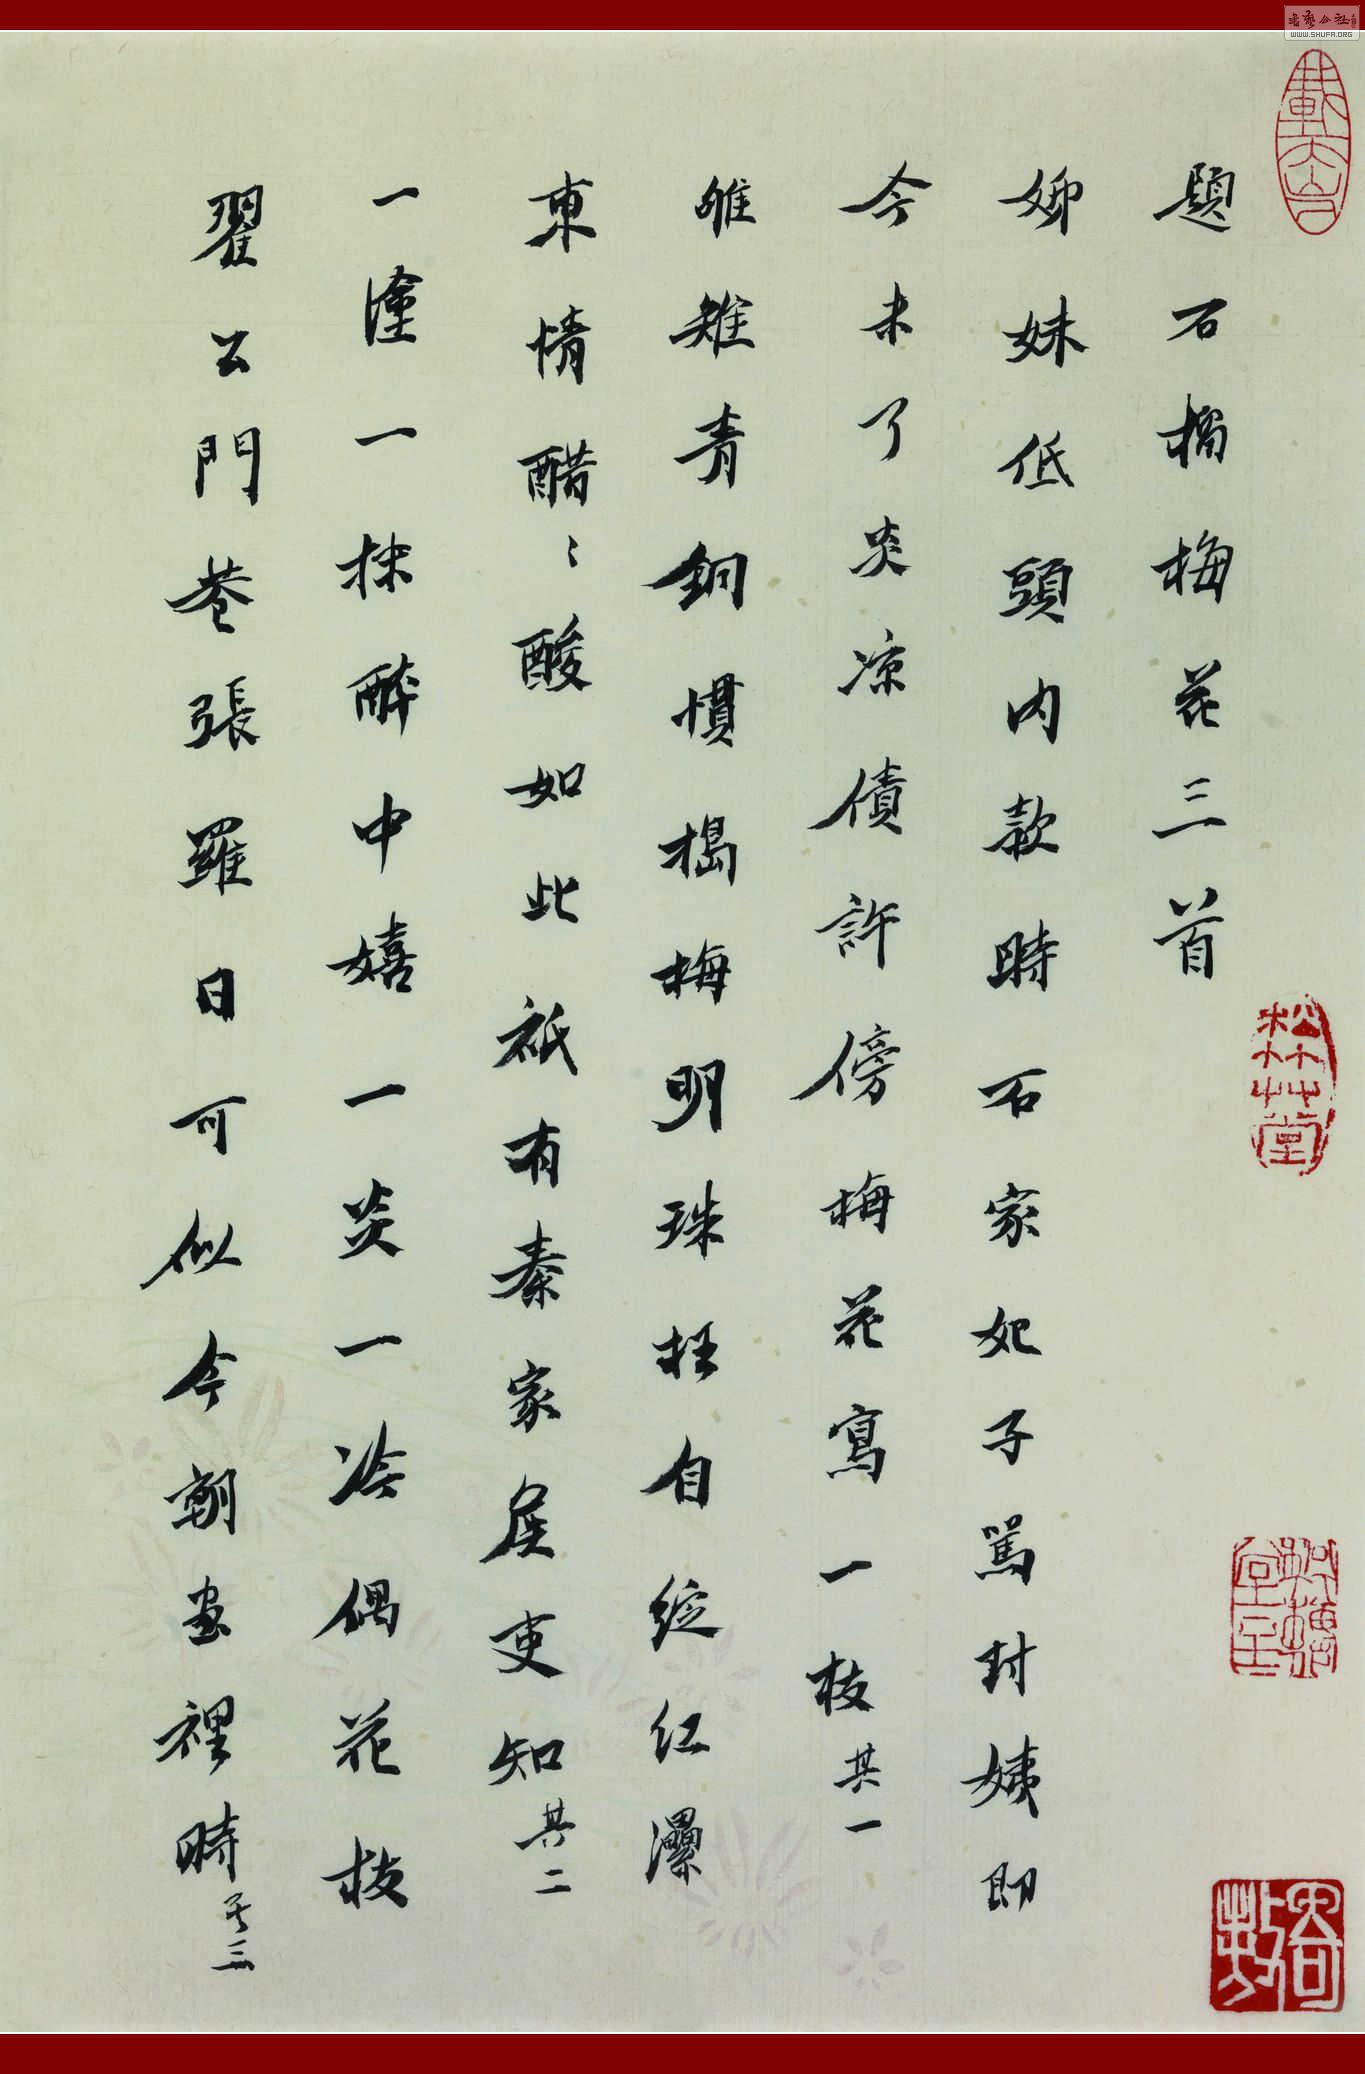 題石榴梅花三首
姊妹低頭內款時石家妃子罵封姨即
今未了炎凉債許傍梅花寫一枝其一
雌雄青銅慣搗梅明珠枉自綻紅瀑
東情醋〻酸如此祇有秦家戾吏知其二
一塗一抹醉中嬉一炎一冷偶花枝
翟公門巷張羅日可似今朝画裡時其三
松竹草堂
WWW.SHUFA.ORG